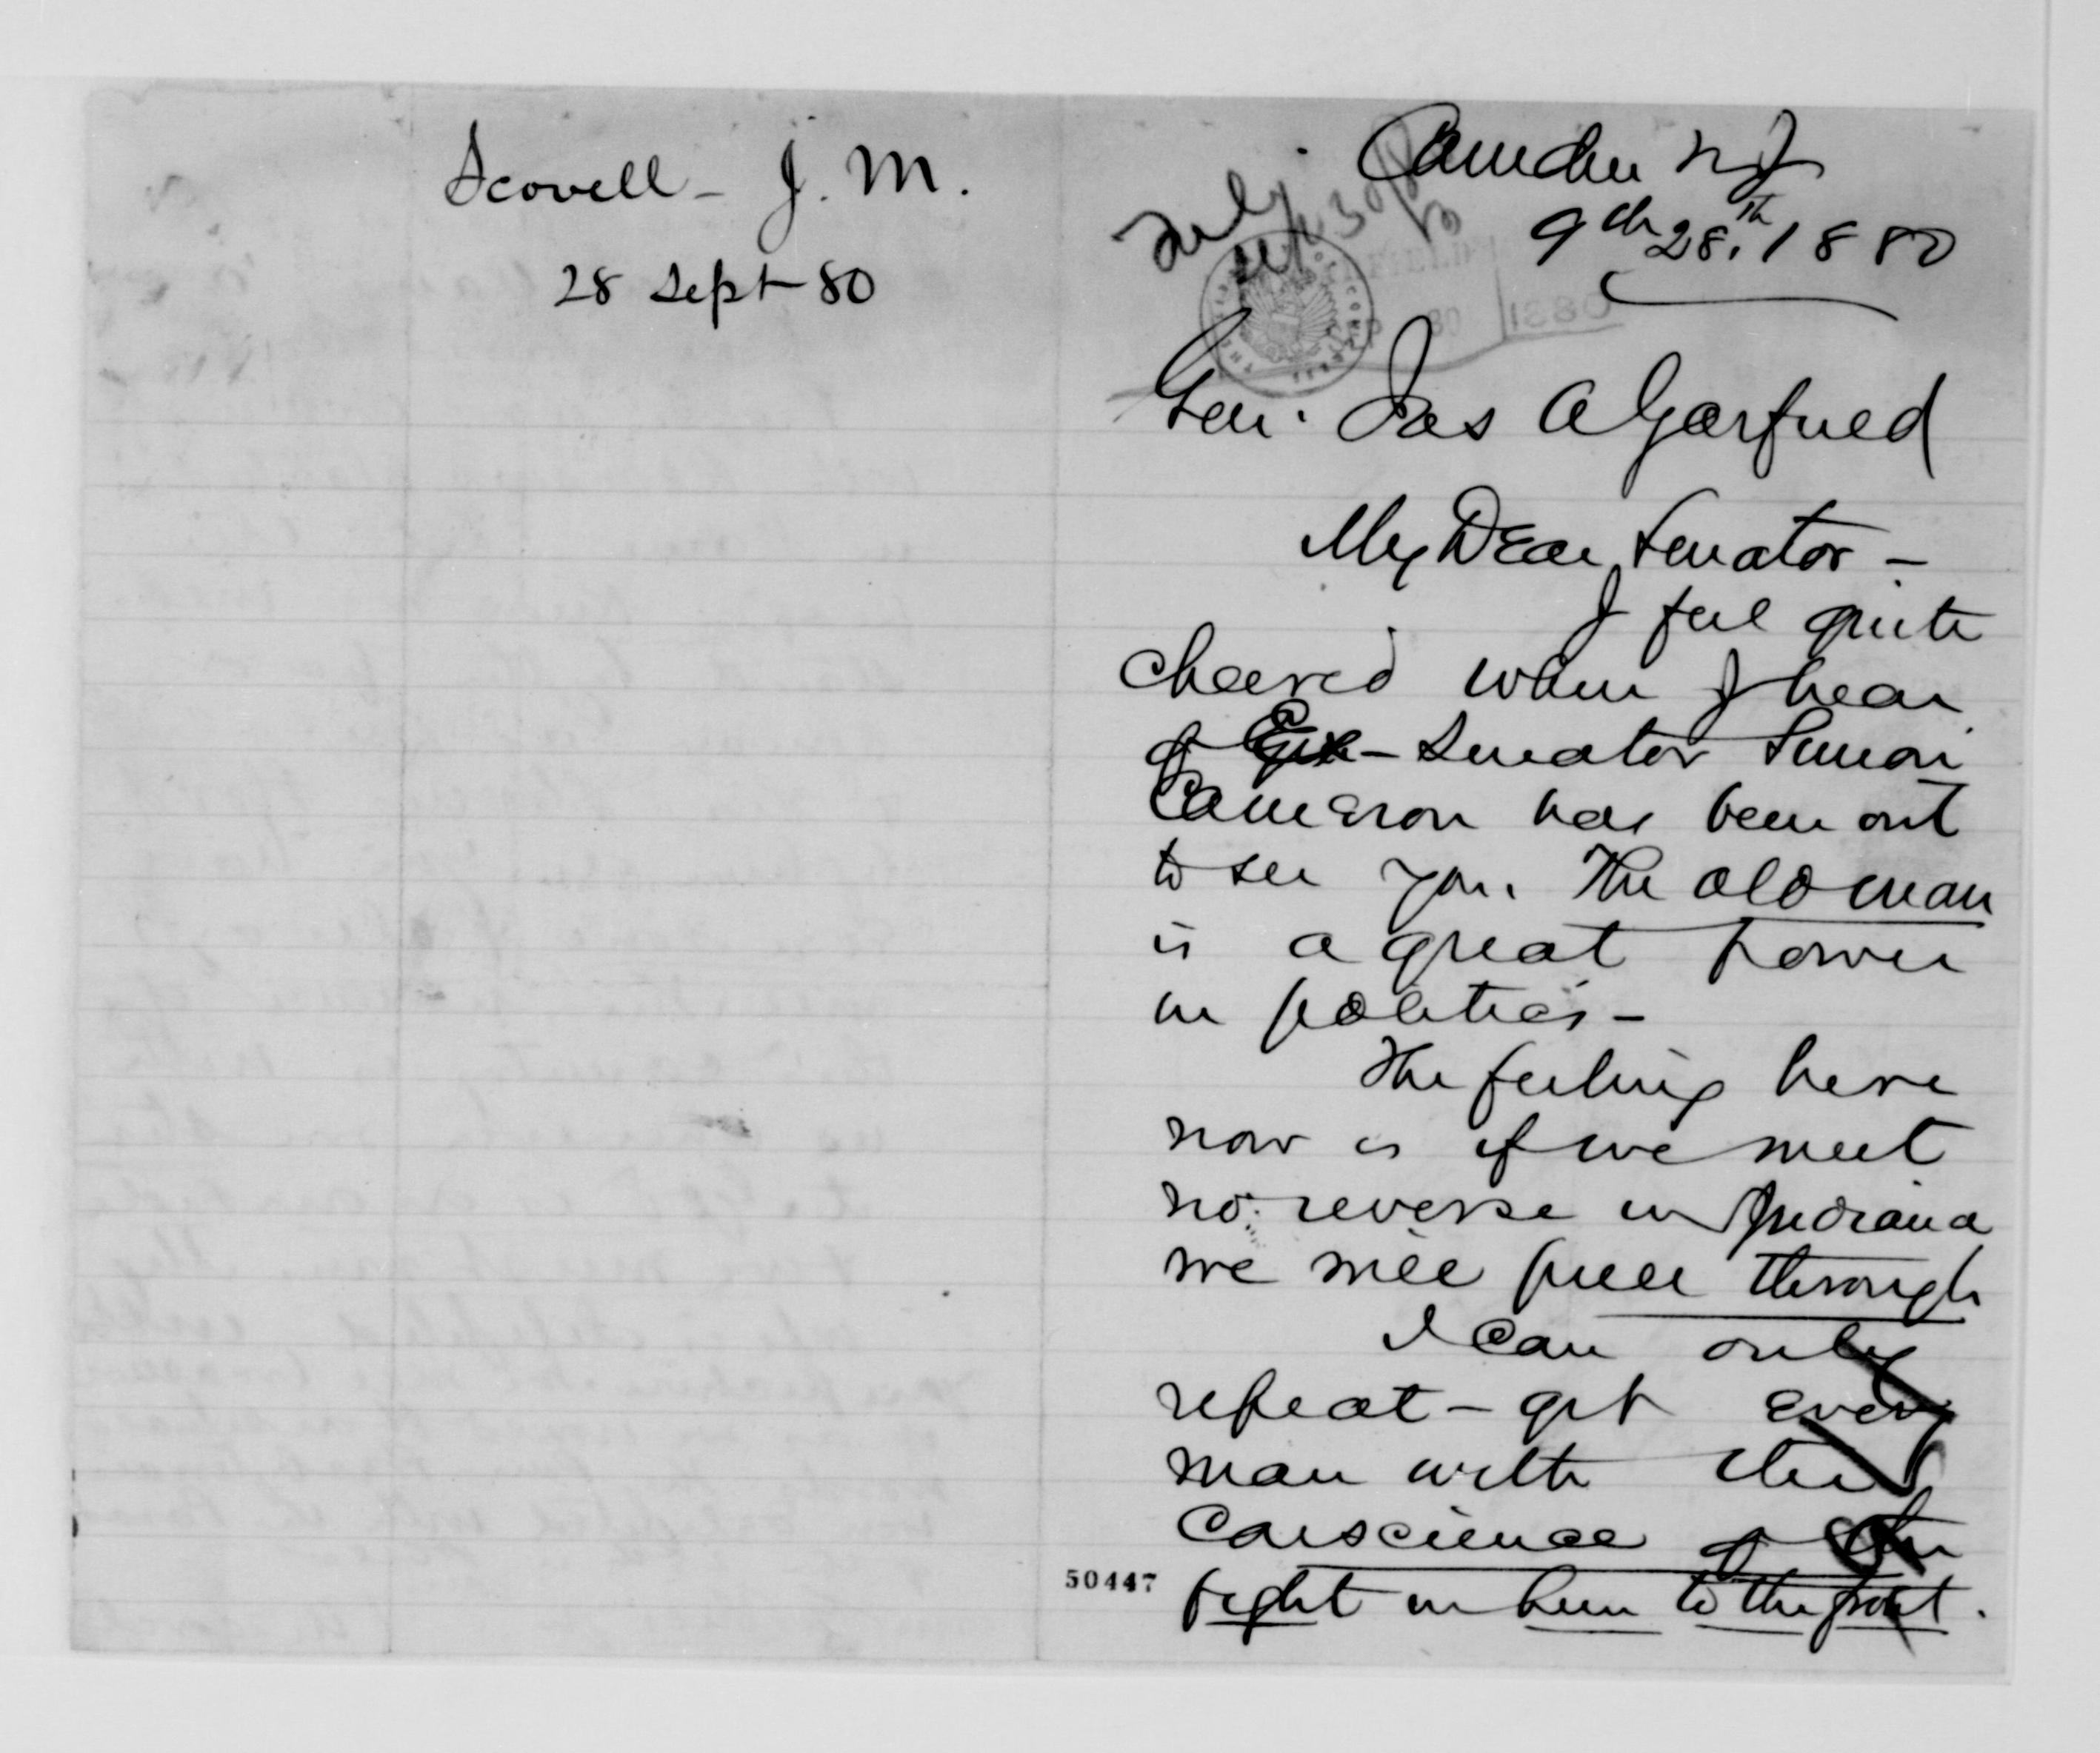 Scovell - J. M.
28 Sept 80
Camden NJ
9th 28.th 1880
Sept 30/80
FIELD
30 1880
Gen. Jas A Garfield
My Dear Senator -
I feel quite
cheered when I hear
of Ex-Senator Simon
Cameron has been out
to see you. The old man
is a great power
in politics -
The feeling here
now is if we meet
no reverse in Indiana
we will pull through
I can only
repeat - get every
man with the
Conscience of the
fight in him to the front.
50447